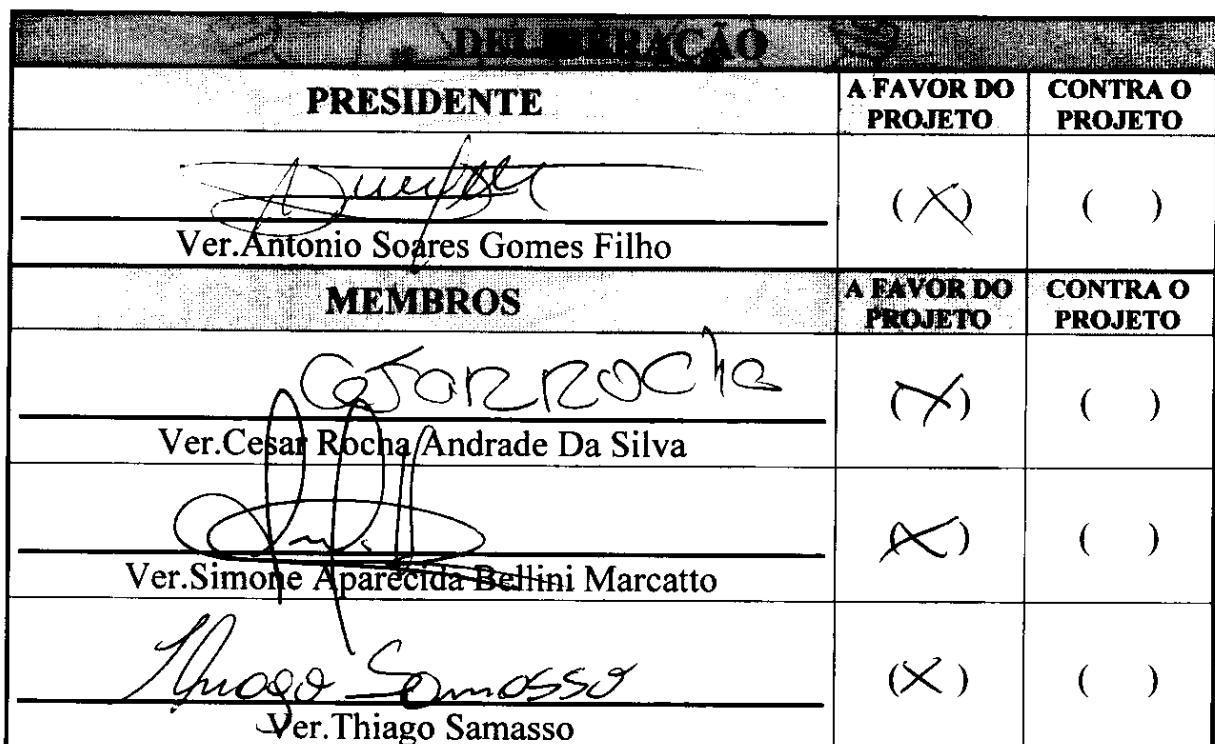 DELIBERAÇÃO
PRESIDENTE A FAVOR DO PROJETO CONTRA O PROJETO
(X) ( )
Ver.Antonio Soares Gomes Filho
MEMBROS A FAVOR DO PROJETO CONTRA O PROJETO
Cesar Rocha (X) ( )
Ver.Cesar Rocha Andrade Da Silva
(X) ( )
Ver.Simone Aparecida Bellini Marcatto
Thiago Samasso (X) ( )
Ver.Thiago Samasso